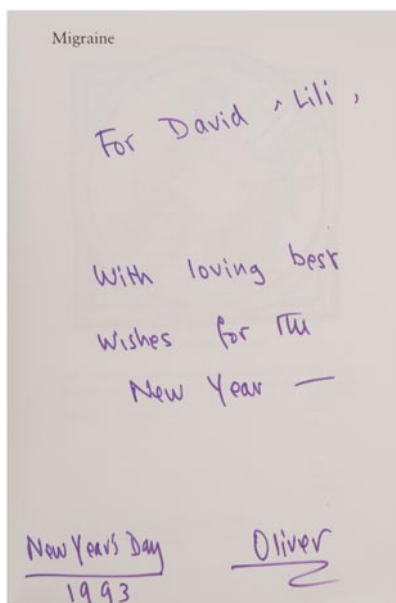 Migraine
For David & Lili,
With loving best
wishes for the
New Year —
New Year's Day
1993
Oliver